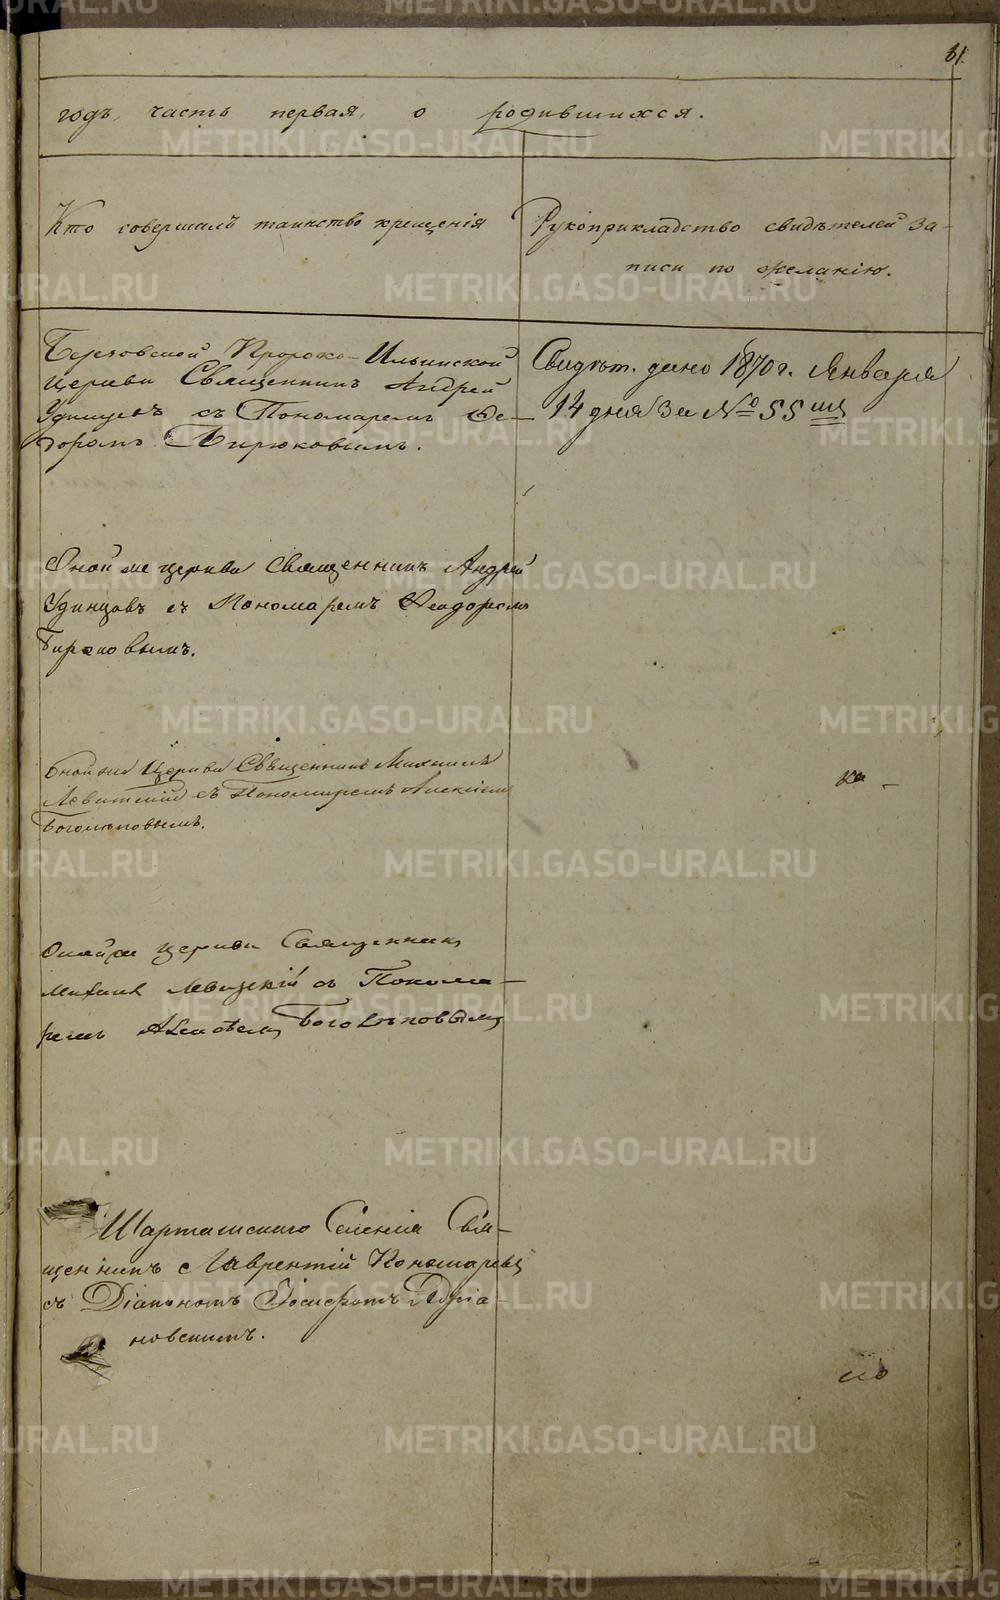 81
годъ, часть первая, о родившихся.
Кто совершалъ таинство крещенія
Рукоприкладство свидѣтелей за-
писи по желанію.
Березовской Пророко-Ильинской
церкви Священникъ Андрей
Удинцовъ съ Пономаремъ Ѳе-
доромъ Бирюковымъ.
Свидѣт. дано 1870 г. Января
14 дня за № 55 мъ
Оной же церкви Священникъ Андрей
Удинцовъ съ Пономаремъ Ѳеодоромъ
Бирюковымъ.
Оной же Церкви Священникъ Михаилъ
Левитскій съ Пономаремъ Алексѣемъ
Боголѣповымъ.
Оной же церкви Священникъ
Михаилъ Левицкій съ Понома-
ремъ Алексѣемъ Боголѣповымъ
Шарташскаго Селенія Свя-
щенникъ Лаврентій Пономаревъ
съ Діакономъ
новскимъ.
METRIKI.GASO-URAL.RU